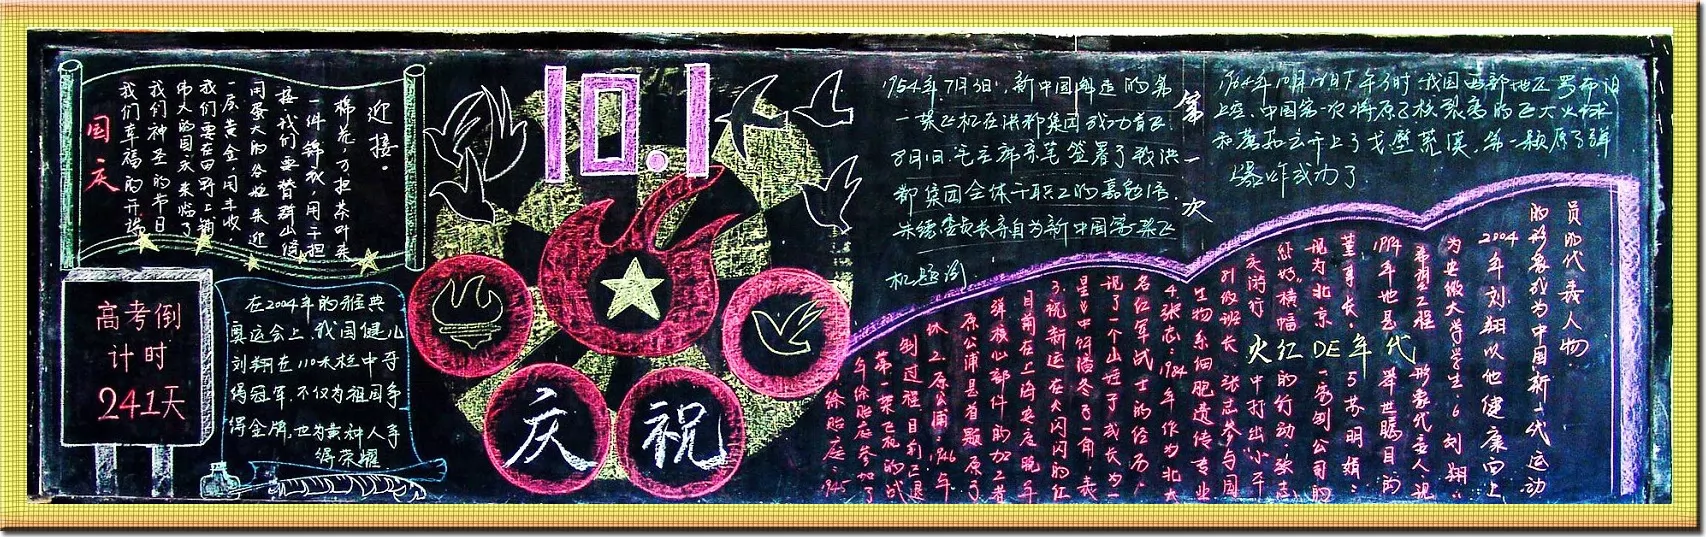 国庆
迎接。
棉花,万担茶叶来
一件锦衣,用千担
接我们要替群山缝
用蛋大的谷粒来迎
一层黄金,用丰收
我们要在田野上铺
伟大的国庆来临了
我们神圣的节日
我们幸福的开端
高考倒
计时
241天
在2004年的雅典
奥运会上,我国健儿
刘翔在110米栏中夺
得冠军,不仅为祖国争
得金牌,也为黄种人争
得荣耀
10.1
庆祝
1954年7月3日,新中国制造的第
一架飞机在洪都集团成功首飞
8月1日,毛主席亲笔签署了致洪
都集团全体干职工的嘉勉信
朱德委员长亲自为新中国第一架飞
机题词
第一次
上空,中国第一次将原子核裂变的巨大火球
和蘑菇云升上了戈壁荒漠,第一颗原子弹
爆炸成功了
火红DE年代
员的代表人物.
的形象成为中国新一代运动
2004年刘翔以他健康向上
为安徽大学学生.6刘翔:
希望工程 形象代主人现
1994年地is 举世瞩目的
董事长.5苏明娟:
现为北京一家创公司的
您好,横幅的行动.张志
天游行 中打出"小平
81级班长,张志参与国
生物系细胞遗传专业
4.张志:1984年作为北大
名红军战士的经历.
现了一个山娃子成长为一
星》中饰潘冬子一角,表
3.祝新运:在《闪闪的红
目前在上海安度晚年
弹核心部件的加工者
原公浦是首颗原子
休 2.原公浦:1946年
制过程.目前已退
第一架飞机的试
年徐贻庭参加了
徐贻庭:1945